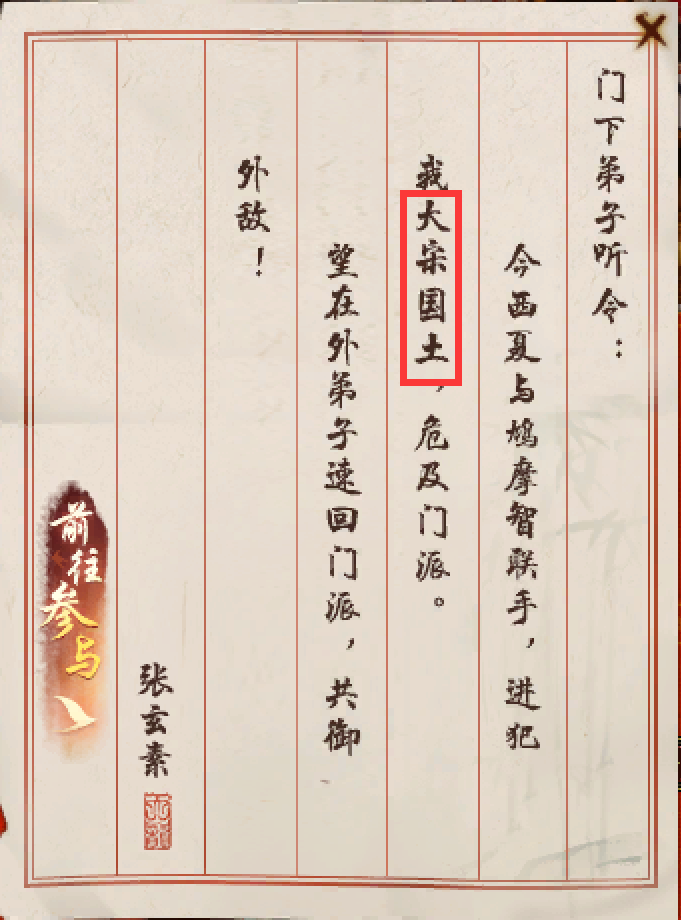 门下弟子听令：
今西夏与鸠摩智联手，进犯
我大宗国土，危及门派。
望在外弟子速回门派，共御
外敌！
张玄素
前往参与